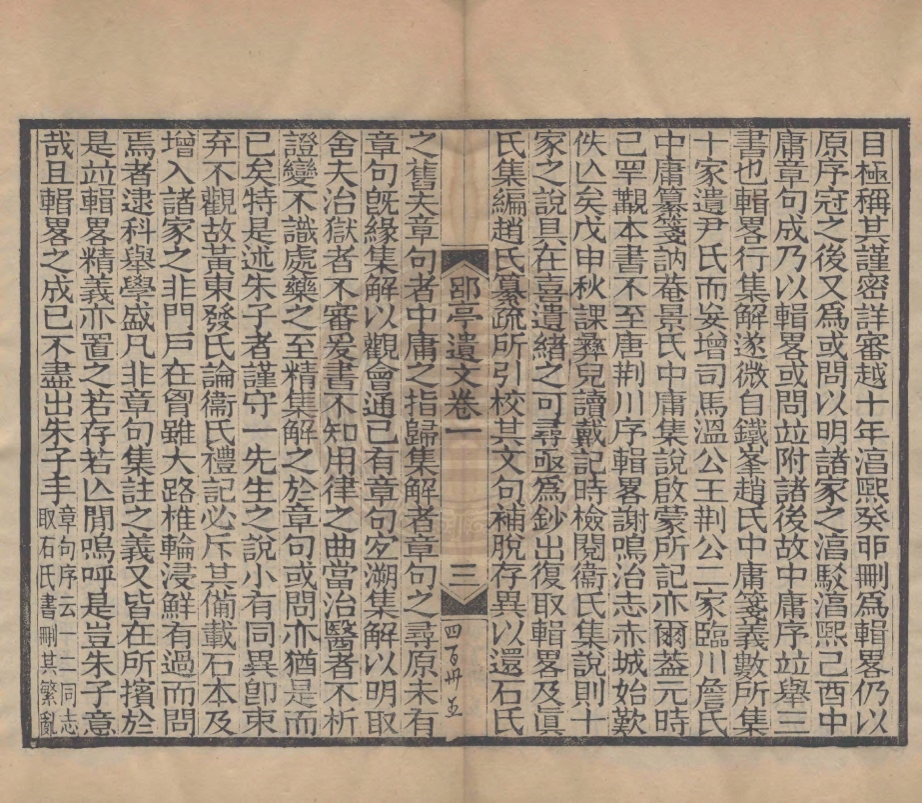 目極稱其謹密詳審越十年湻熙癸卯刪爲輯畧仍以
原序冠之後又爲或問以明諸家之湻駁湻熙己酉中
庸章句成乃以輯畧或問竝附諸後故中庸序竝舉三
書也輯畧行集解遂微自鐵峯趙氏中庸箋義數所集
十家遺尹氏而妄增司馬溫公王荆公二家臨川詹氏
中庸纂箋訥菴景氏中庸集說啟蒙所記亦爾葢元時
己罕觀本書不至唐荆川序輯畧謝鳴治志赤城始歎
佚亾矣戊申秋課彝兒讀戴記時檢閱衞氏集說則十
家之說具在喜遺緒之可尋亟爲鈔出復取輯畧及眞
氏集編趙氏纂疏所引校其文句補脫存異以還石氏
郘亭遺文卷一
三
四百卅五
之舊夫章句者中庸之指歸集解者章句之尋原未有
章句旣緣集解以觀會通己有章句㝎溯集解以明取
舍夫治獄者不審爰書不知用律之曲當治醫者不析
證變不識處藥之至精集解之於章句或問亦猶是而
已矣特是述朱子者謹守一先生之說小有同異卽束
弃不觀故黃東發氏論衞氏禮記必斥其備載石本及
增入諸家之非門戶在胷雖大路椎輪浸鮮有過而問
焉者逮科舉學盛凡非章句集註之義又皆在所擯於
是竝輯畧精義亦置之若存若亾閒嗚呼是豈朱子意
哉且輯畧之成已不盡出朱子手章句序云一二同志
取石氏書刪其繁亂